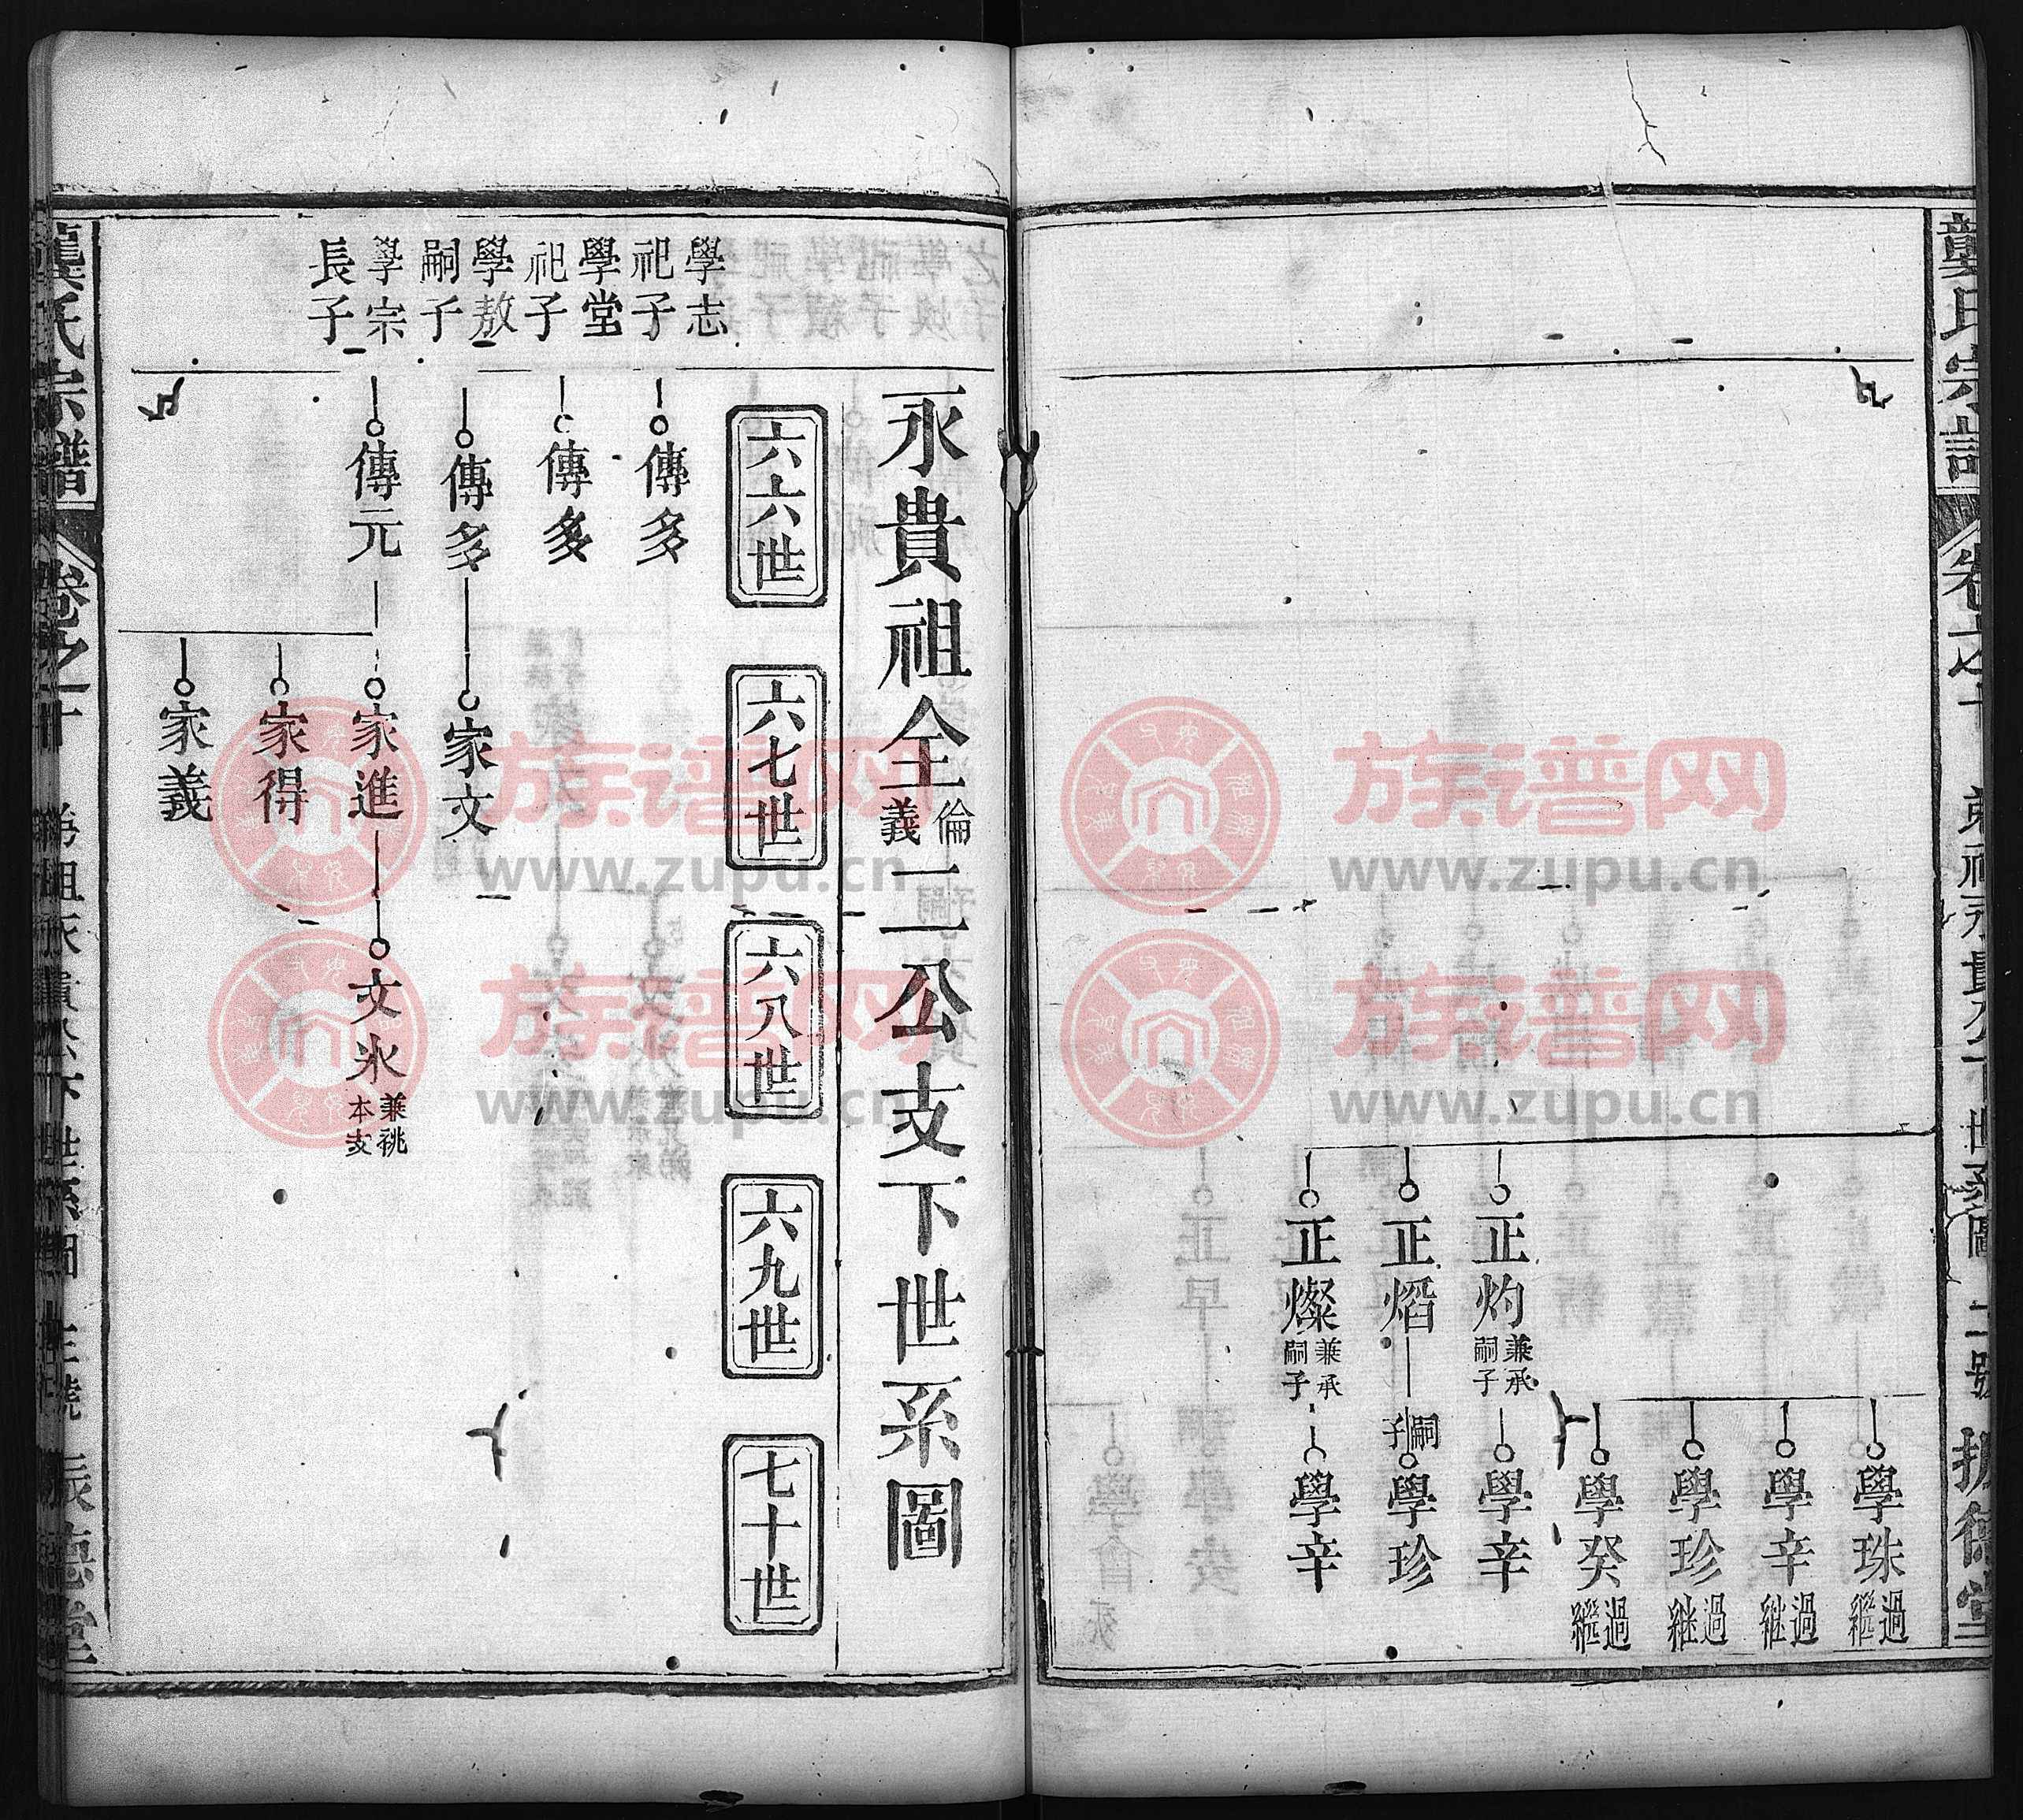 龔氏宗譜
卷之十
永貴公下世系圖
振德堂
正灼 兼承嗣子
正熖
正燦 兼承嗣子
學珠 過繼
學辛 過繼
學珍 過繼
學癸 過繼
學辛
嗣子 學珍
學辛
永貴祖全倫義二公支下世系圖
六六世
六七世
六八世
六九世
七十世
學志祀子
傳多
學堂祀子
傳多
學敖嗣子
傳多
家文
學宗長子
傳元
家進
文氷 兼祧本支
家得
家義
龔氏宗譜
卷之十
振德堂
族谱网
www.zupu.cn
族谱网
www.zupu.cn
族谱网
www.zupu.cn
族谱网
www.zupu.cn